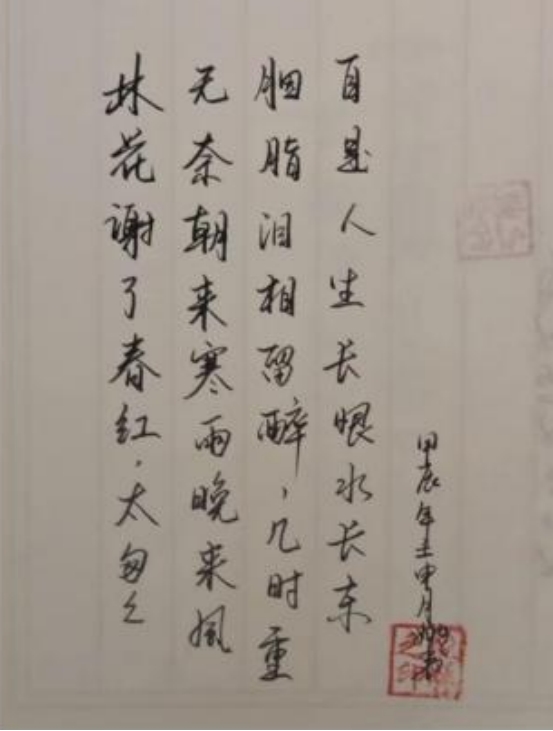 林花谢了春红，太匆々
无奈朝来寒雨晚来风
胭脂泪相留醉，几时重
自是人生长恨水长东
甲辰年壬申月
之印